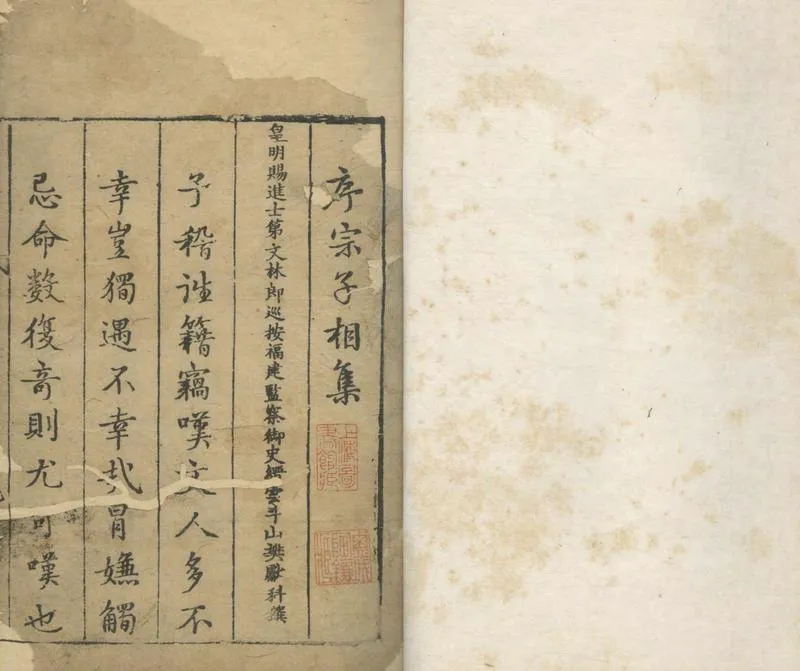 序宗子相集
皇明賜進士第文林郎巡按福建監察御史縉雲斗山樊獻科撰
予稽諸籍竊嘆文人多不
幸豈獨遇不幸哉冐嫌觸
忌命數復奇則尤可嘆也
上海圖書館藏